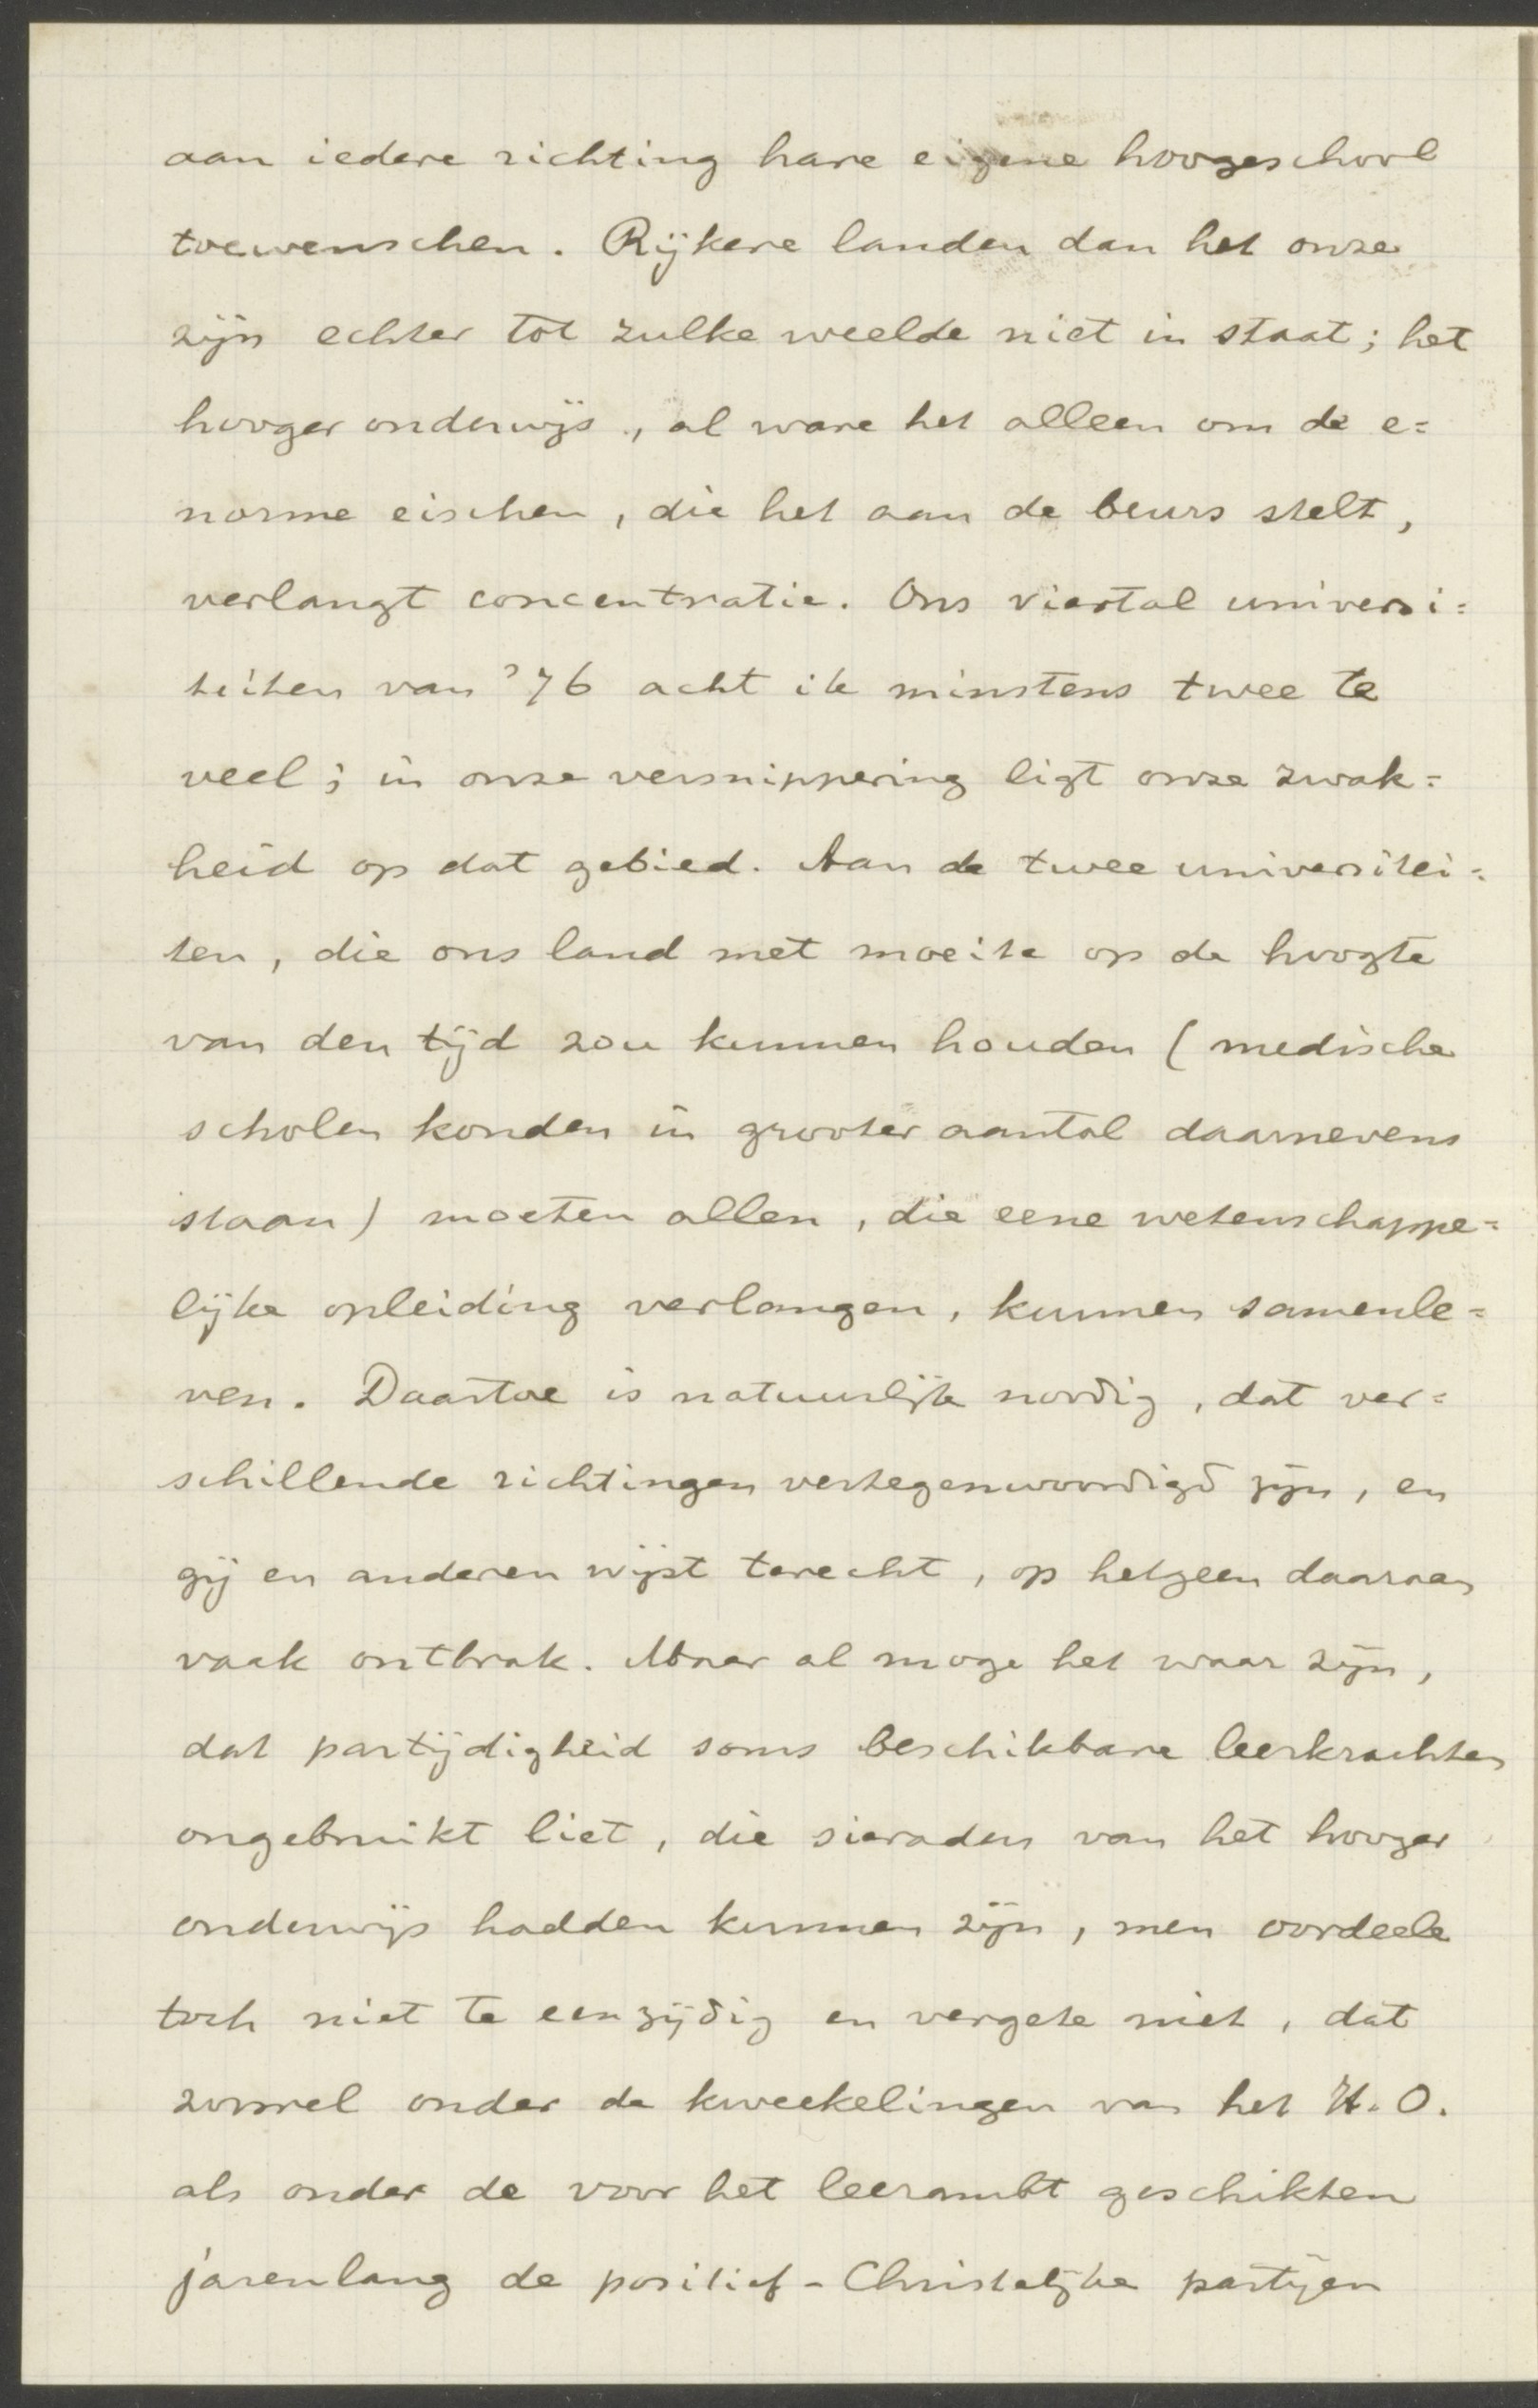 aan iedere richting hare eigene hoogeschool
toewenschen. Rijkere landen dan het onze
zijn echter tot zulke weelde niet in staat; het
hooger onderwijs, al ware het alleen om de e=
norme eischen, die het aan de beurs stelt,
verlangt concentratie. Ons viertal universi=
teiten van '76 acht ik minstens twee te
veel; in onze versnippering ligt onze zwak=
heid op dat gebied. Aan de twee universitei=
ten, die ons land met moeite op de hoogte
van den tijd zou kunnen houden (medische
scholen konden in grooter aantal daarnevens
staan) moeten allen, die eene wetenschappe=
lijke opleiding verlangen, kunnen samenle=
ven. Daartoe is natuurlijk noodig, dat ver=
schillende richtingen vertegenwoordigd zijn, en
gij en anderen wijst terecht, op hetgeen daaraan
vaak ontbrak. Maar al moge het waar zijn,
dat partijdigheid soms beschikbare leerkrachten
ongebruikt liet, die sieraden van het hooger
onderwijs hadden kunnen zijn, men oordeele
toch niet te eenzijdig en vergete niet, dat
zoowel onder de kweekelingen van het H.O.
als onder de voor het leerambt geschikten
jarenlang de positief-Christelijke partijen